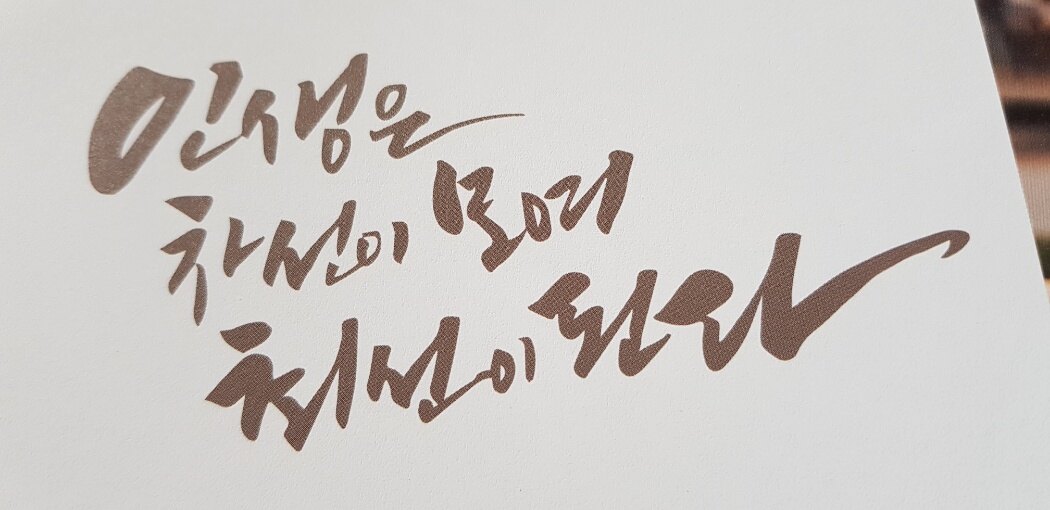 인생은
차선이 모여
최선이 된다